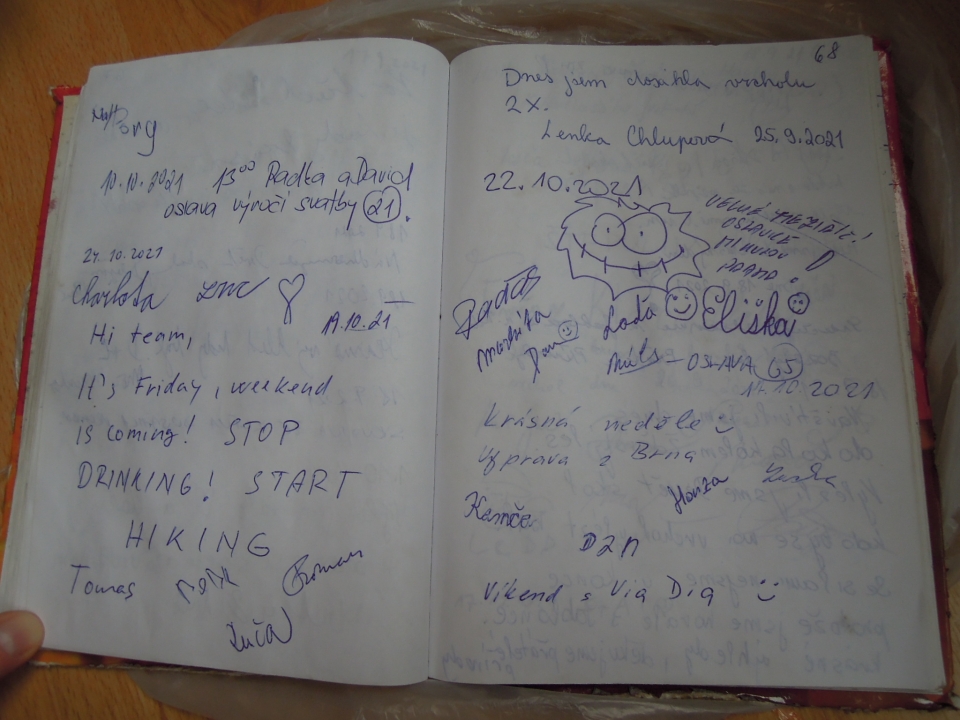 10.10.2021 13⁰⁰ Radka a David
oslava výročí svatby 21.
24.10.2021
Charlota
19.10.21
Hi team,
It's Friday, weekend
is coming! STOP
DRINKING! START
HIKING
Tomas
Roman
Lucia
68
Dnes jsem dosáhla vrcholu
2x.
Lenka Chlupová 25.9.2021
22.10.2021
VELKÉ MEZIŘÍČ!
Markéta
Laďa Eliška
- OSLAVA 65
17.10.2021
Krásná neděle
Výprava z Brna
Honza Lenka
Kamča
DZN
Víkend s Via Dia